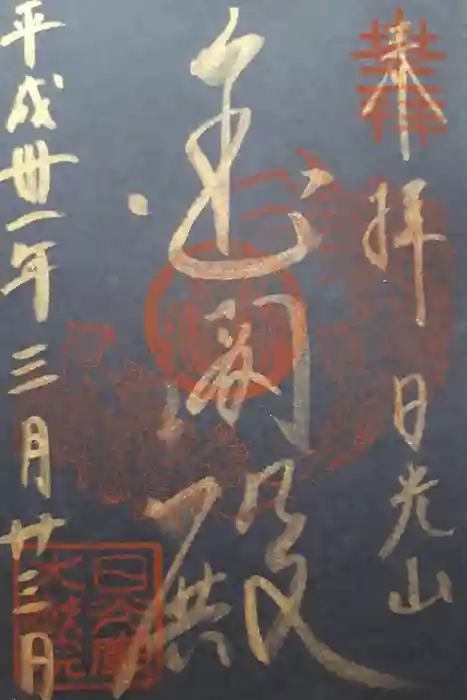 奉拝 日光山
金閣殿
平成卅一年三月廿三日
日光廟
大猷院